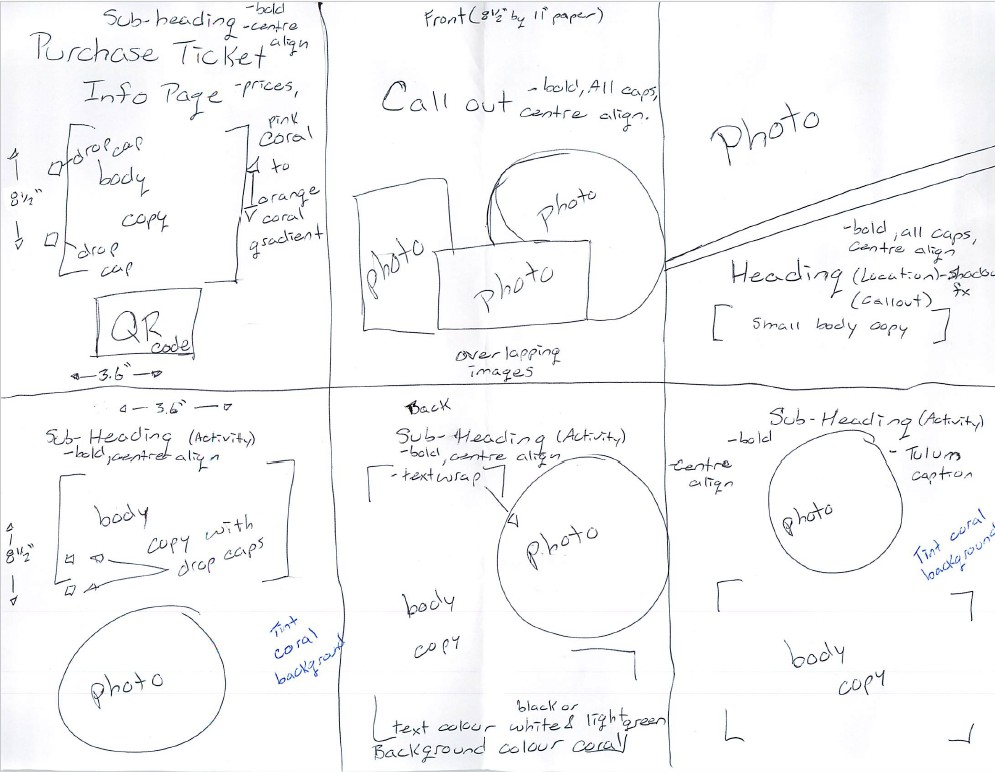 Sub-heading -bold
-centre
align
Purchase Ticket
Info Page -prices,
pink
coral
to
orange
coral
gradient
drop cap
body
copy
drop
cap
8½"
QR
code
3.6"
Front (8½" by 11" paper)
Call out -bold, All caps,
centre align.
photo
photo
photo
overlapping
images
Photo
-bold, all caps,
centre align
Heading (Location)-shadow
fx
(callout)
small body copy
3.6"
Sub-Heading (Activity)
-bold, centre align
body
copy with
drop caps
8½"
photo
Tint
coral
background
Back
Sub-Heading (Activity)
-bold, centre align
-text wrap
photo
body
copy
black or
text colour white & light green
Background colour coral
Sub-Heading (Activity)
-bold
-centre
align
-Tulum
caption
photo
Tint coral
background
body
copy